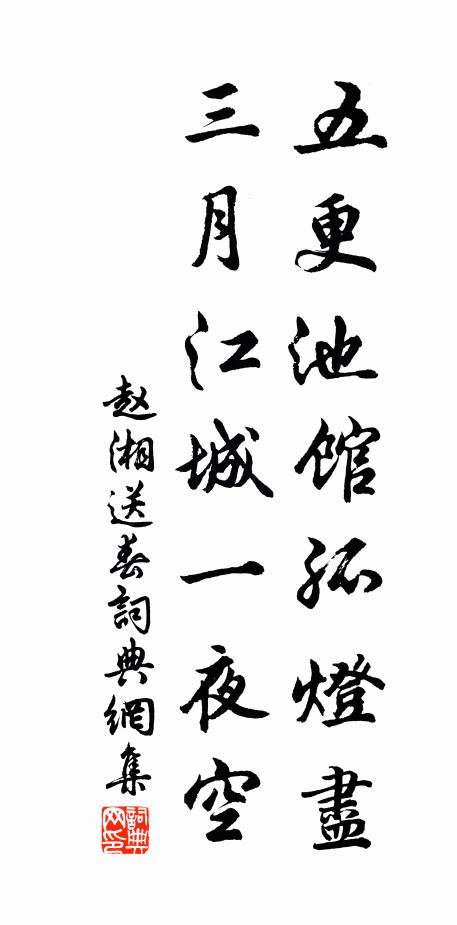 五更池馆孤燈盡
三月江城一夜空
赵湘送春詞典網集
詞典网印